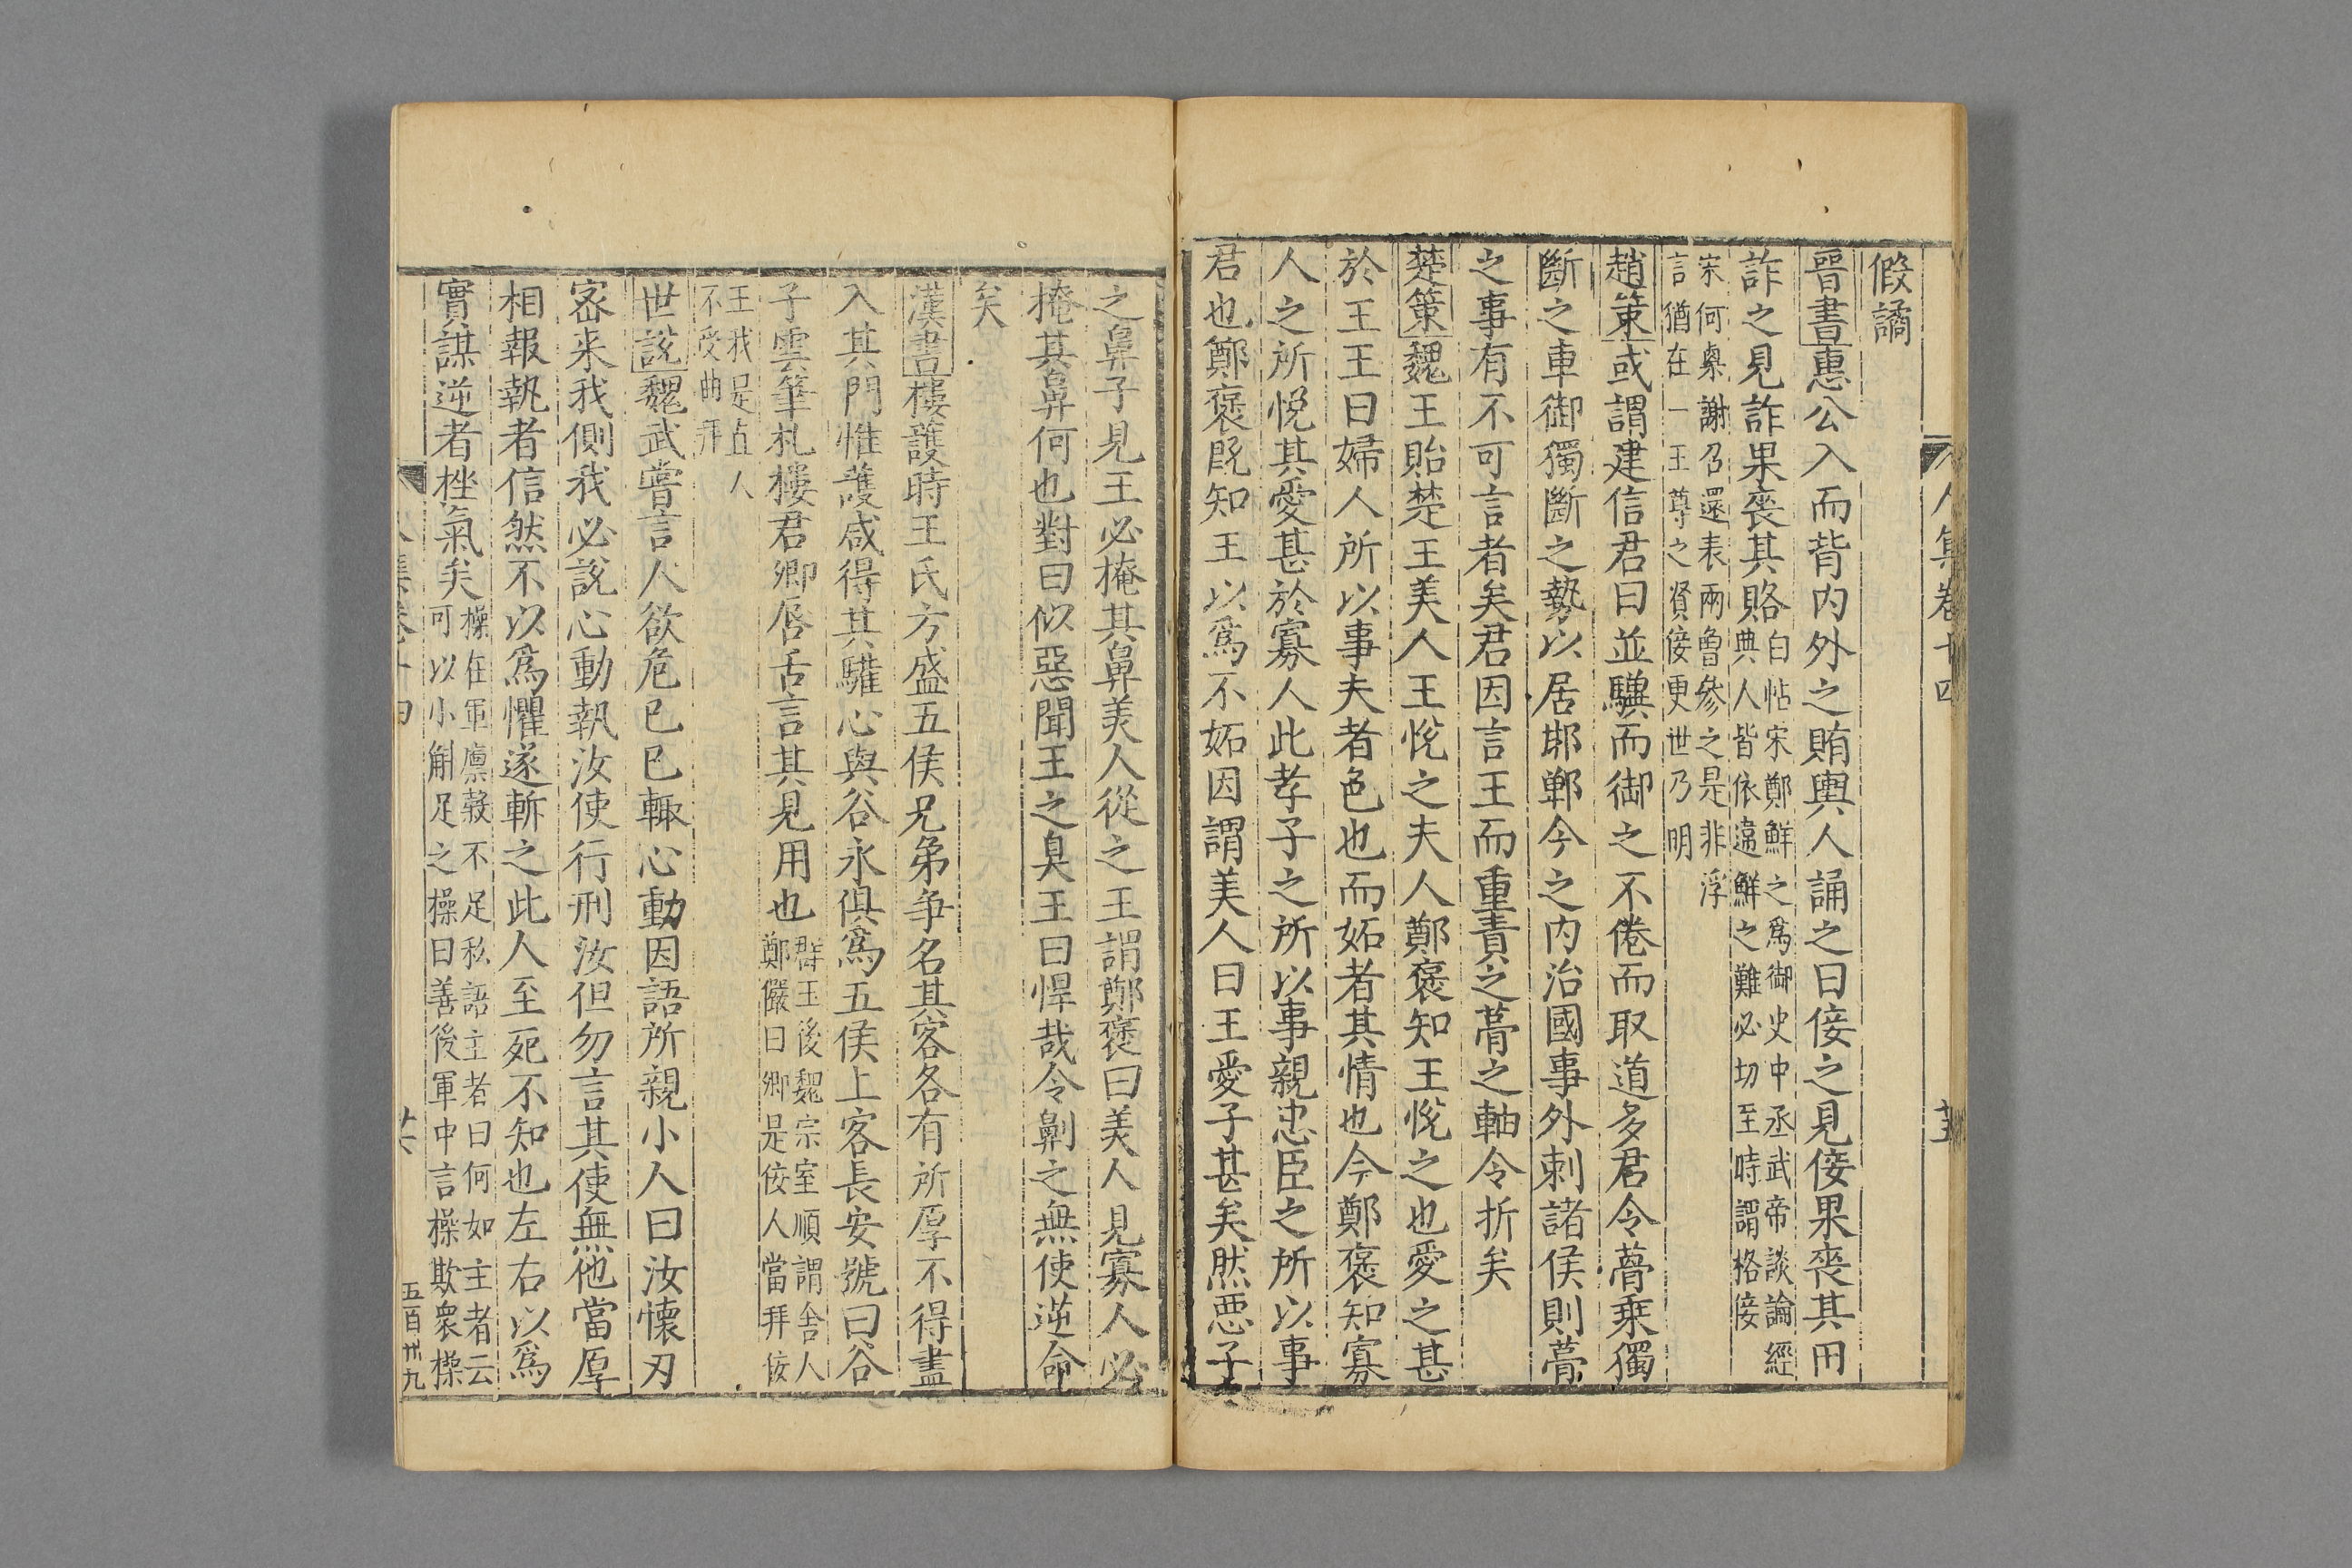 人集卷十四
十五
假譎
晉書惠公入而背内外之賄輿人誦之曰佞之見佞果喪其田
詐之見詐果喪其賂
白帖宋鄭鮮之爲御史中丞武帝談論經
典人皆依違鮮之難必切至時謂格佞
宋何㮚謝召還表兩魯參之是非浮
言猶在一王尊之賢佞更世乃明
趙策或謂建信君曰並驥而御之不倦而取道多君令䔥乗獨
斷之車御獨斷之勢以居邯鄲令之内治國事外刺諸侯則䔥
之事有不可言者矣君因言王而重責之䔥之軸今折矣
楚策魏王貽楚王美人王悅之夫人鄭褒知王悅之也愛之甚
於王王曰婦人所以事夫者色也而妬者其情也今鄭褒知寡
人之所悅其愛甚於寡人此孝子之所以事親忠臣之所以事
君也鄭褒旣知王以爲不妬因謂美人曰王愛子甚矣然惡子
之鼻子見王必掩其鼻美人從之王謂鄭褒曰美人見寡人必
掩其鼻何也對曰似惡聞王之臭王曰悍哉令劓之無使逆命
矣
漢書樓護時王氏方盛五侯兄弟争名其客各有所厚不得盡
入其門惟護咸得其驩心與谷永俱爲五侯上客長安號曰谷
子雲筆札樓君卿唇舌言其見用也
群玉後魏宗室順謂舍人
鄭儼曰卿是佞人當拜佞
王我是直人
不受曲拜
世說魏武嘗言人欲危己己輒心動因語所親小人曰汝懐刃
宻来我側我必說心動執汝使行刑汝但勿言其使無他當厚
相報執者信然不以爲懼遂斬之此人至死不知也左右以爲
實謀逆者挫氣矣
操在軍廪榖不足私語主者曰何如主者云
可以小斛足之操曰善後軍中言操欺衆操
人集卷十四
十六
五百卅九